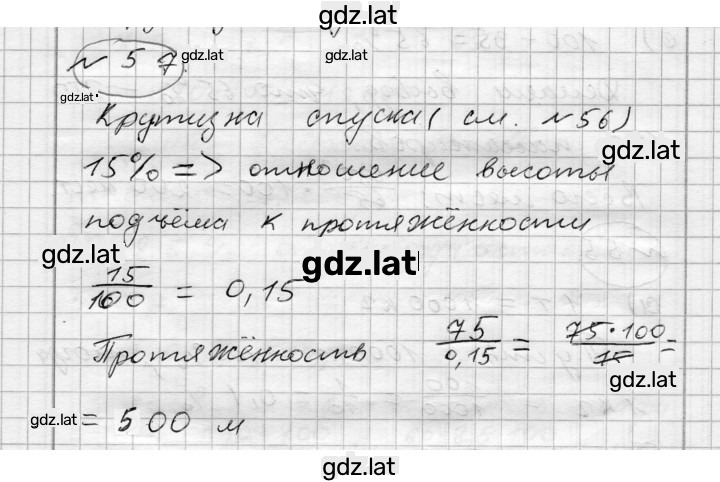 gdz.lat
№ 57.
gdz.lat
gdz.lat
gdz.lat
Крутизна спуска (см. №56)
gdz.lat
15% => отношение высоты
подъёма к протяжённости
gdz.lat
gdz.lat
15/100 = 0,15
Протяжённость 75/0,15 = 75·100/15 =
gdz.lat
gdz.lat = 500 м
gdz.lat
gdz.lat